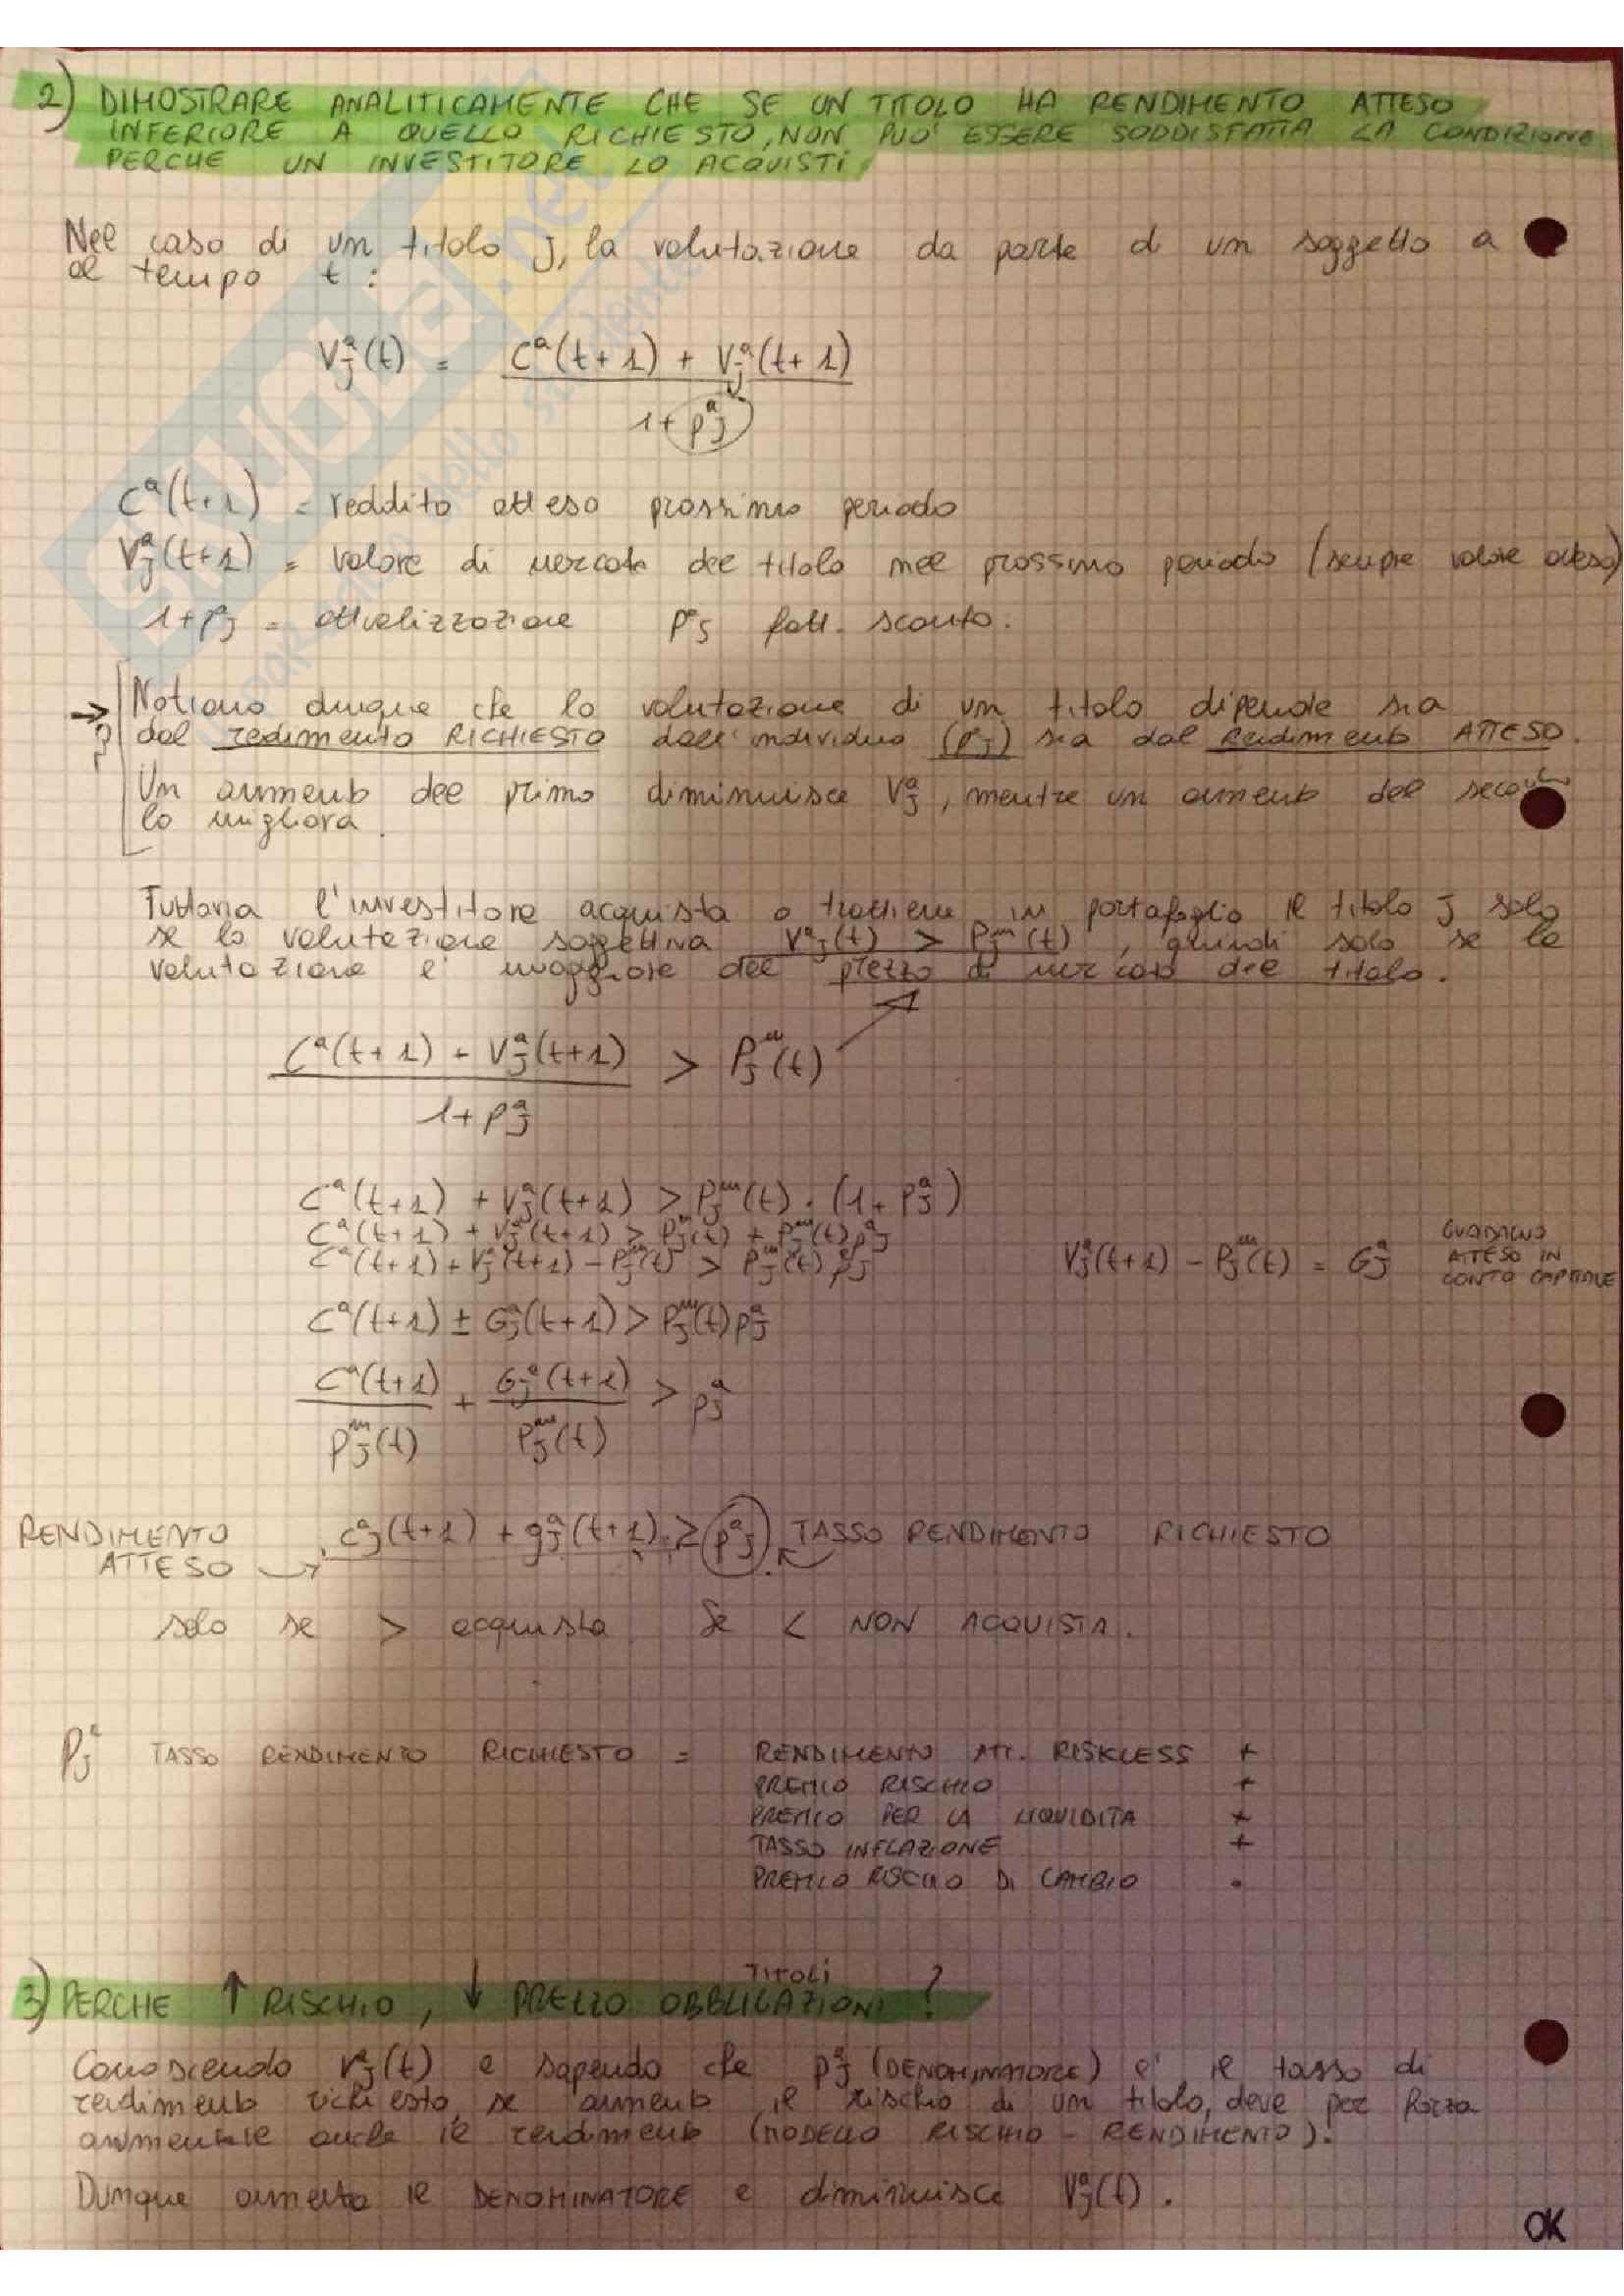 2) DIMOSTRARE ANALITICAMENTE CHE SE UN TITOLO HA RENDIMENTO ATTESO
INFERIORE A QUELLO RICHIESTO, NON PUO' ESSERE SODDISFATTA LA CONDIZIONE
PERCHE UN INVESTITORE LO ACQUISTI
Nel caso di un titolo J, la valutazione da parte d un soggetto a
al tempo t :
Vᵃⱼ(t) = Cᵃ(t+1) + Vᵃⱼ(t+1)
1+ρᵃⱼ
Cᵃ(t+1) = reddito atteso prossimo periodo
Vᵃⱼ(t+1) = valore di mercato del titolo nel prossimo periodo (sempre valore atteso)
1+ρᵃⱼ = attualizzazione ρᵃⱼ fatt. sconto.
→ Notiamo dunque che la valutazione di un titolo dipende sia
? dal redimento RICHIESTO dall'individuo (ρᵃⱼ) sia dal Rendimento ATTESO.
Un aumento del primo diminuisce Vᵃⱼ, mentre un aumento del secondo
lo migliora.
Tuttavia l'investitore acquista o trattiene in portafoglio il titolo J solo
se la valutazione soggettiva Vᵃⱼ(t) > Pᵐⱼ(t), quindi solo se la
valutazione e' maggiore del prezzo di mercato del titolo.
Cᵃ(t+1) + Vᵃⱼ(t+1) > Pᵐⱼ(t)
1+ρᵃⱼ
Cᵃ(t+1) + Vᵃⱼ(t+1) > Pᵐⱼ(t) · (1+ρᵃⱼ)
Cᵃ(t+1) + Vᵃⱼ(t+1) > Pᵐⱼ(t) + Pᵐⱼ(t)ρᵃⱼ
Cᵃ(t+1) + Vᵃⱼ(t+1) − Pᵐⱼ(t) > Pᵐⱼ(t) ρᵃⱼ
Vᵃⱼ(t+1) − Pᵐⱼ(t) = Gᵃⱼ
GUADAGNO
ATTESO IN
CONTO CAPITALE
Cᵃ(t+1) ± Gᵃⱼ(t+1) > Pᵐⱼ(t)ρᵃⱼ
Cᵃ(t+1) + Gᵃⱼ(t+1) > ρᵃⱼ
Pᵐⱼ(t) Pᵐⱼ(t)
RENDIMENTO
ATTESO → cᵃⱼ(t+1) + gᵃⱼ(t+1) ≥ ρᵃⱼ TASSO RENDIMENTO RICHIESTO
solo se > acquista Se < NON ACQUISTA.
ρᵃⱼ TASSO RENDIMENTO RICHIESTO = RENDIMENTO ATT. RISKLESS +
PREMIO RISCHIO +
PREMIO PER LA LIQUIDITA +
TASSO INFLAZIONE +
PREMIO RISCHIO DI CAMBIO .
TITOLI
3) PERCHE ↑ RISCHIO, ↓ PREZZO OBBLIGAZIONI ?
Conoscendo Vᵃⱼ(t) e sapendo che ρᵃⱼ (DENOMINATORE) e' il tasso di
rendimento richiesto, se aumenta il rischio di un titolo, deve per forza
aumentare anche il rendimento (MODELLO RISCHIO - RENDIMENTO).
Dunque aumenta il DENOMINATORE e diminuisce Vᵃⱼ(t).
OK